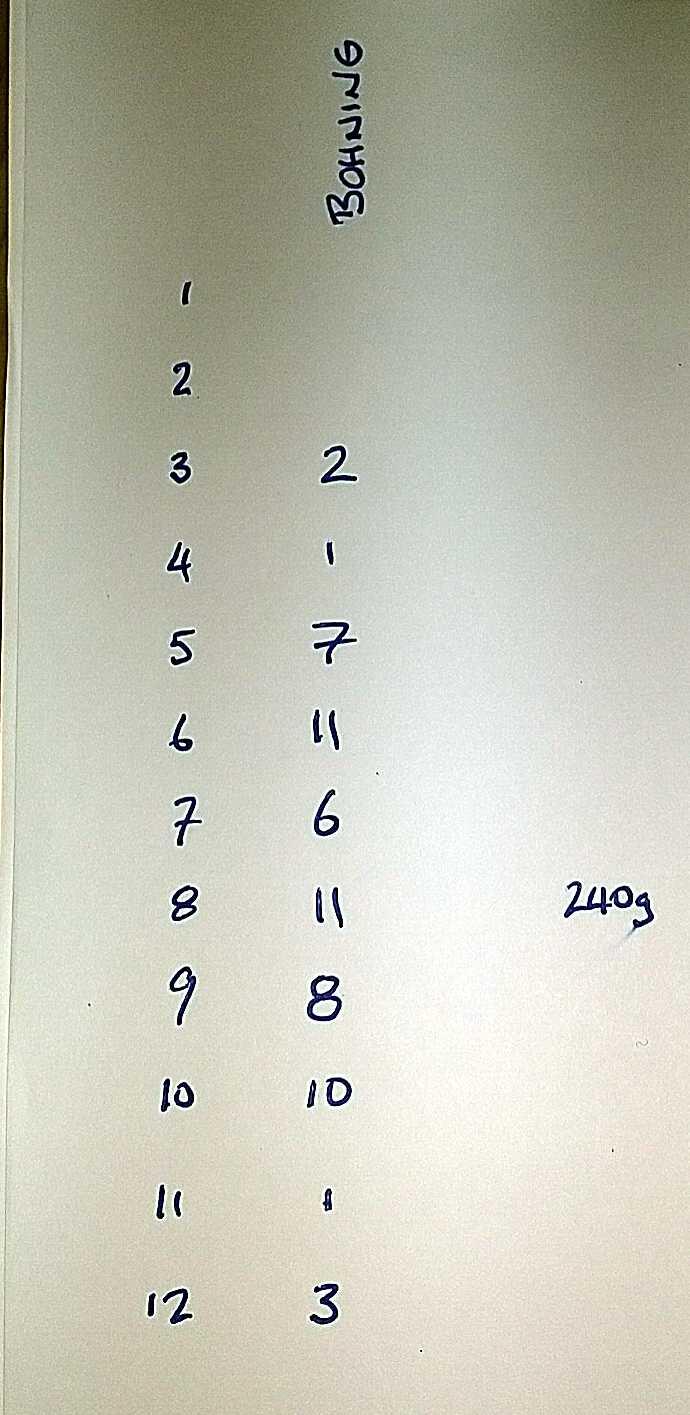 BOHNING
1
2
3 2
4 1
5 7
6 11
7 6
8 11 240g
9 8
10 10
11 1
12 3